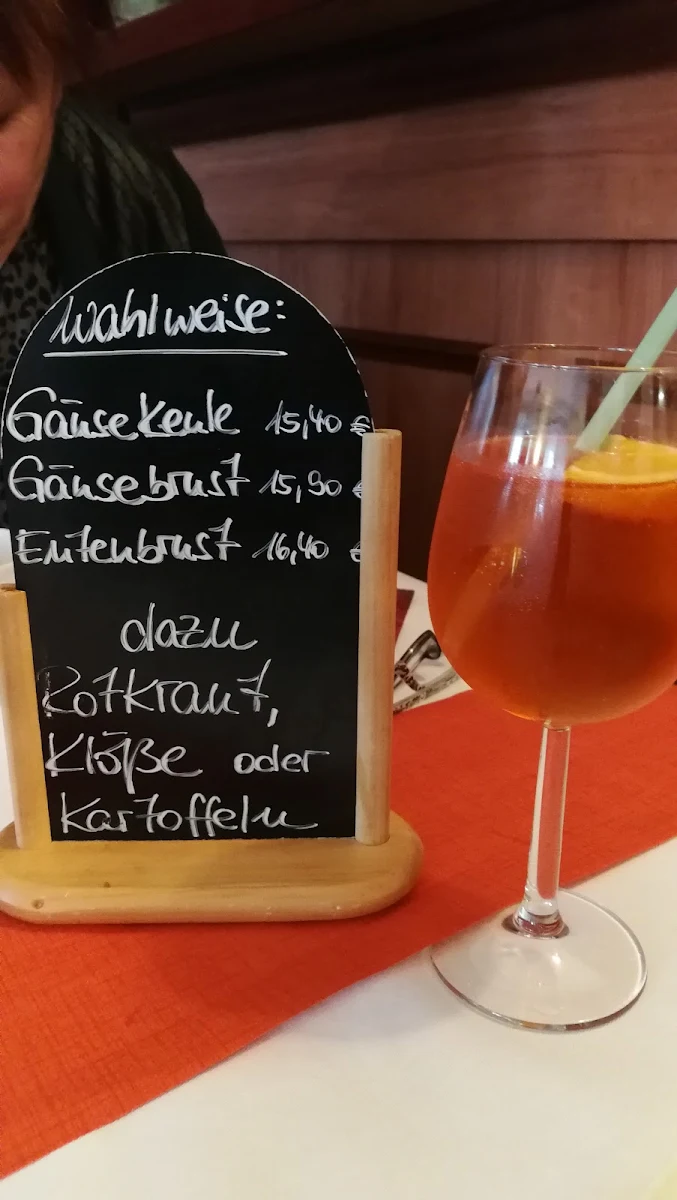 Wahlweise:
Gänsekeule 15,40 €
Gänsebrust 15,90 €
Entenbrust 16,40 €
dazu
Rotkraut,
Klöße oder
Kartoffeln